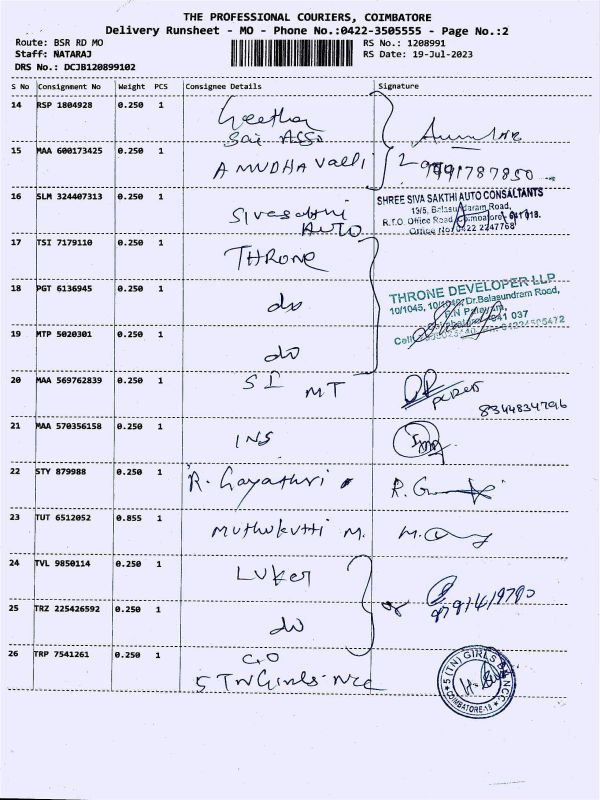 THE PROFESSIONAL COURIERS, COIMBATORE
Delivery Runsheet - MO - Phone No.:0422-3505555 - Page No.:2
Route: BSR RD MO
RS No.: 1208991
Staff: NATARAJ
RS Date: 19-Jul-2023
DRS No.: DCJB120899102
S No Consignment No Weight PCS Consignee Details Signature
14 RSP 1804928 0.250 1 Geetha
Sai Asso
15 MAA 600173425 0.250 1 AMUDHA Valli
16 SLM 324407313 0.250 1 Sivasakthi
AUTO
SHREE SIVA SAKTHI AUTO CONSALTANTS
13/5, Balasundaram Road,
R.T.O. Office Road, Coimbatore 641 018.
Office No: 0422 2247768
17 TSI 7179110 0.250 1 THRONE
18 PGT 6136945 0.250 1 do
THRONE DEVELOPER LLP
10/1045, 10/1046, Dr.Balasundram Road,
P.N Palayam,
Coimbatore 641 037
Cell:
19 MTP 5020301 0.250 1 do
20 MAA 569762839 0.250 1 SL MT
8344834796
21 MAA 570356158 0.250 1 INS
22 STY 879988 0.250 1 R. Gayathri
R. G
23 TUT 6512052 0.855 1 Muthukutti M.
24 TVL 9850114 0.250 1 LUKER
25 TRZ 225426592 0.250 1 do
26 TRP 7541261 0.250 1 C.O
5 TN Girls. NCC
5 (TN) GIRLS BN NCC
COIMBATORE-18